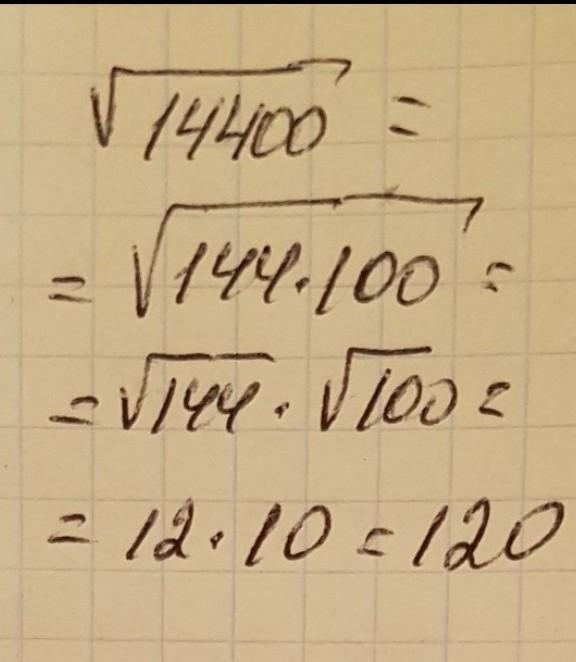 √14400 =
= √144·100 =
= √144 · √100 =
= 12·10 = 120